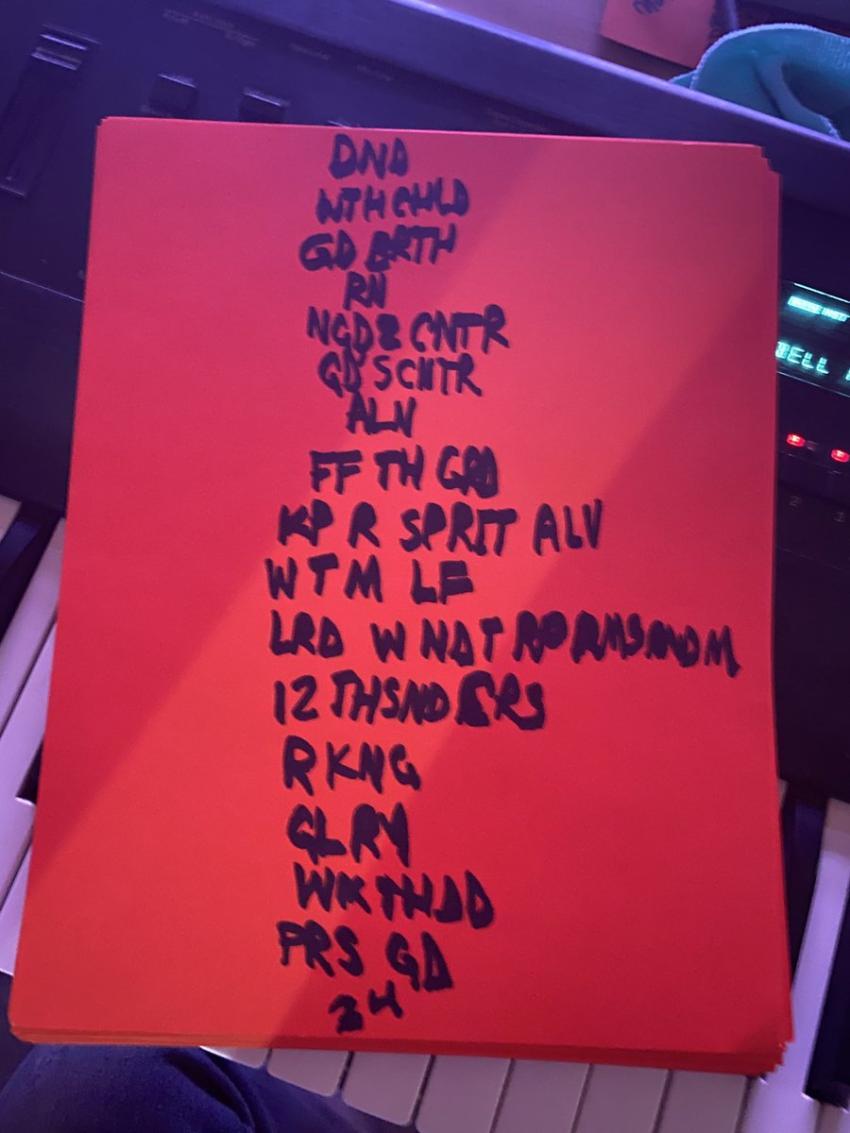 DND
WTHCHLD
GD BRTH
RN
NGD2 CNTR
GD S CNTR
ALN
FF TH GRD
KP R SPRIT ALV
W T M LF
LRD W NDT
12 THSND
RKNG
GLRY
WK TH DD
PRS GD
24
ELL